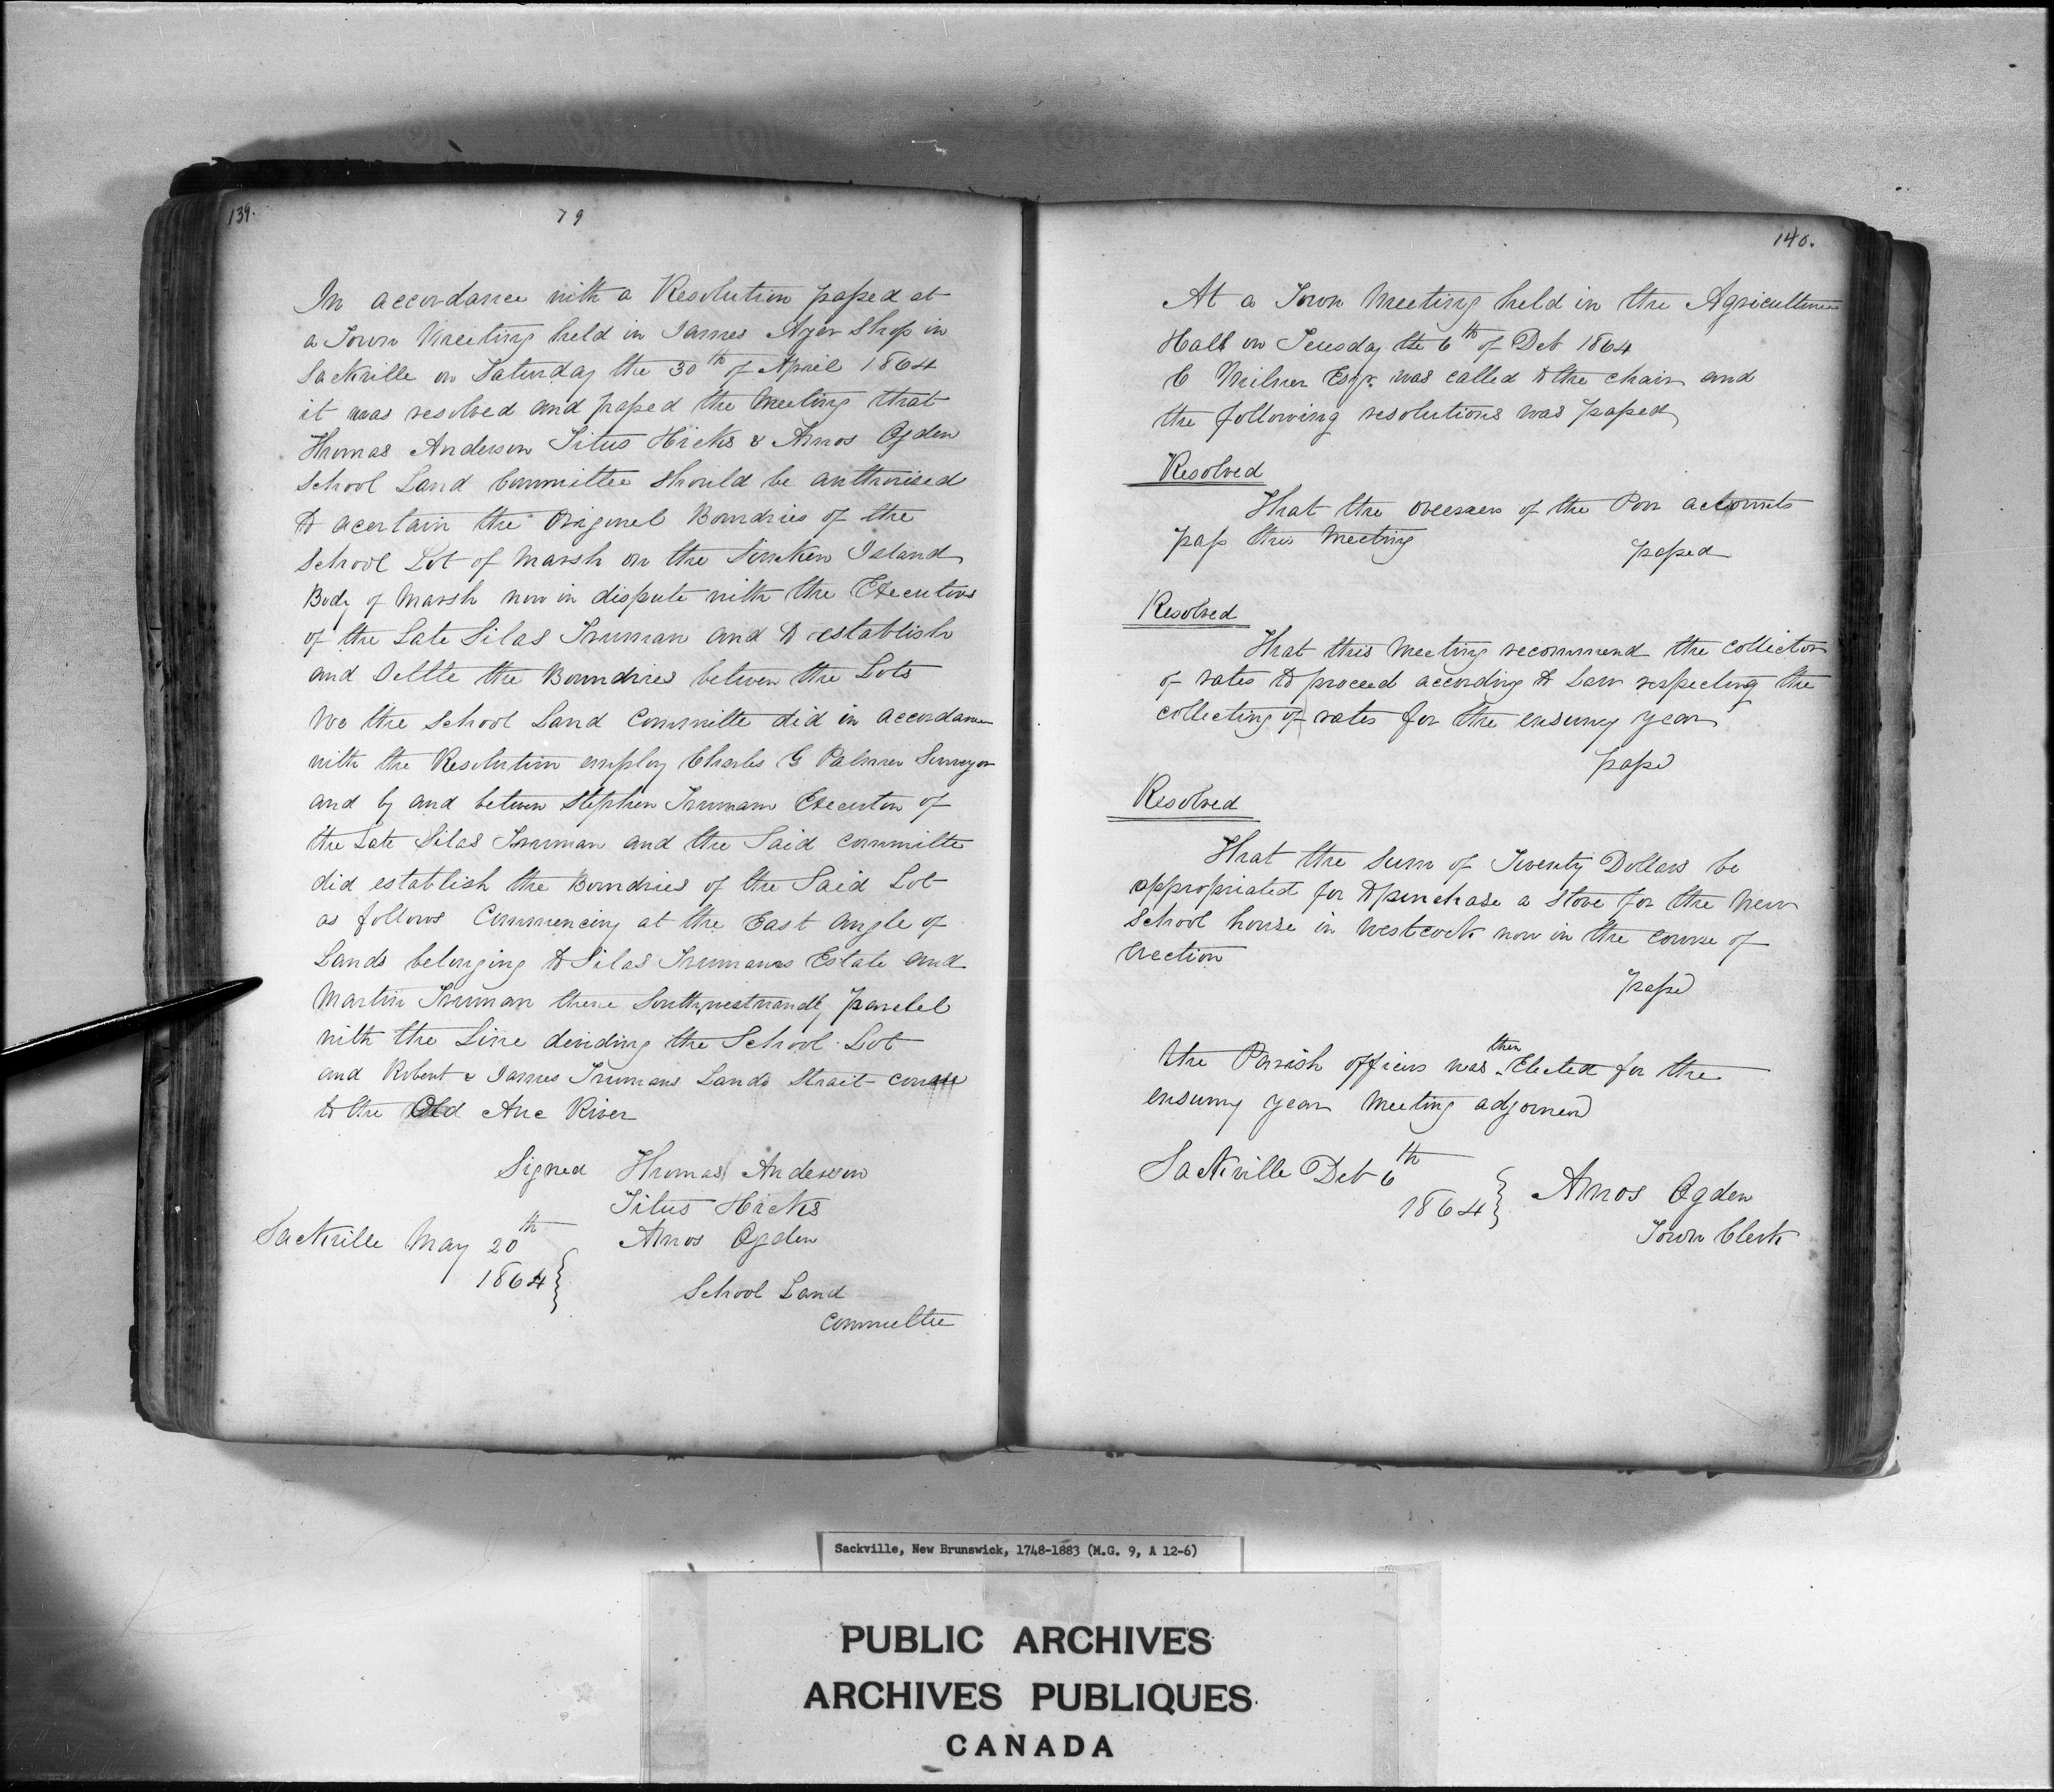 139.
79
In accordance with a Resolution passed at
a Town Meeting held in James Ayer Shop in
Sackville on Saturday the 30th of April 1864
it was resolved and passed the Meeting that
Thomas Anderson Titus Hicks & Amos Ogden
School Land Committee should be authorised
to acertain the Origonel Boundries of the
School Lot of Marsh on the Sunken Island
Body of Marsh now in dispute with the Executors
of the Late Silas Truman and to establish
and Settle the Boundries betwen the Lots
We the School Land Committe did in accordance
with the Resolution employ Charles G Palmer Surveyor
and by and betwen Stephen Trumam Executor of
the Late Silas Truman and the Said committe
did establish the Boundries of the Said Lot
as follows Commencing at the East Angle of
Lands belonging to Silas Trumans Estate and
Martin Truman thence Southwestwardly Paralel
with the Line deviding the School Lot
and Robert & James Trumans Lands Strait course
to the Old Auc River
Signed Thomas Anderson
Titus Hicks
Sackville May 20th Amos Ogden
1864
School Land
Committee
140.
At a Town Meeting held in the Agriculture
Hall on Teusday the 6th of Deb 1864
C Milner Esqr. was called to the chair and
the following resolutions was passed
Resolved
That the overseers of the Poor accounts
pass this Meeting
passed
Resolved
That this Meeting recommend the collector
of rates to proceed according to Law respecting the
collecting of rates for the ensuing year
passd
Resolved
That the Sum of Twenty Dollars be
appropriated for to purchase a Stove for the New
School house in Westcock now in the course of
erection
passd
The Parish officers was then Elected for the
ensuing year Meeting adjorned
Sackville Deb 6th
1864
Amos Ogden
Town Clerk
Sackville, New Brunswick, 1748-1883 (M.G. 9, A 12-6)
PUBLIC ARCHIVES
ARCHIVES PUBLIQUES
CANADA